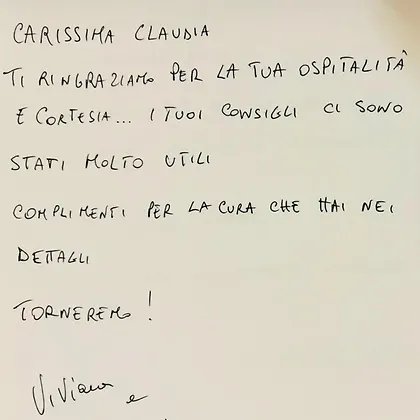 CARISSIMA CLAUDIA
TI RINGRAZIAMO PER LA TUA OSPITALITÀ
E CORTESIA... I TUOI CONSIGLI CI SONO
STATI MOLTO UTILI
COMPLIMENTI PER LA CURA CHE HAI NEI
DETTAGLI
TORNEREMO!
Viviana e